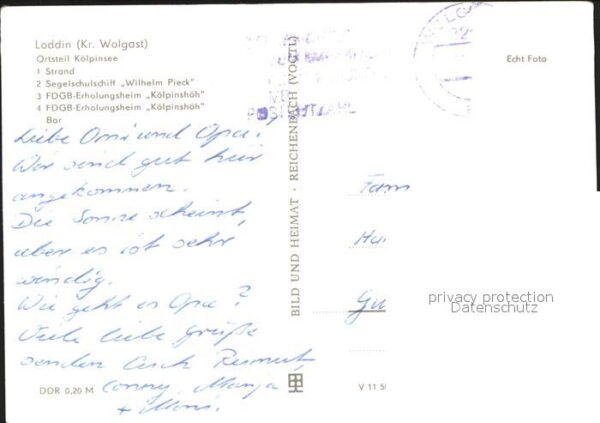 Loddin (Kr. Wolgast)
Ortsteil Kölpinsee
1 Strand
2 Segelschulschiff „Wilhelm Pieck"
3 FDGB-Erholungsheim „Kölpinshöh"
4 FDGB-Erholungsheim „Kölpinshöh"
Bar
Echt Foto
Liebe Omi und Opa!
Wir sind gut hier
angekommen.
Die Sonne scheint,
aber es ist sehr
windig.
Wie geht es Opa?
Viele liebe Grüße
senden Euch
Conny, Manja
+
BILD UND HEIMAT · REICHENBACH (VOGTL)
Fam
Ha
Gu
privacy protection
Datenschutz
DDR 0,20 M
V 11 5